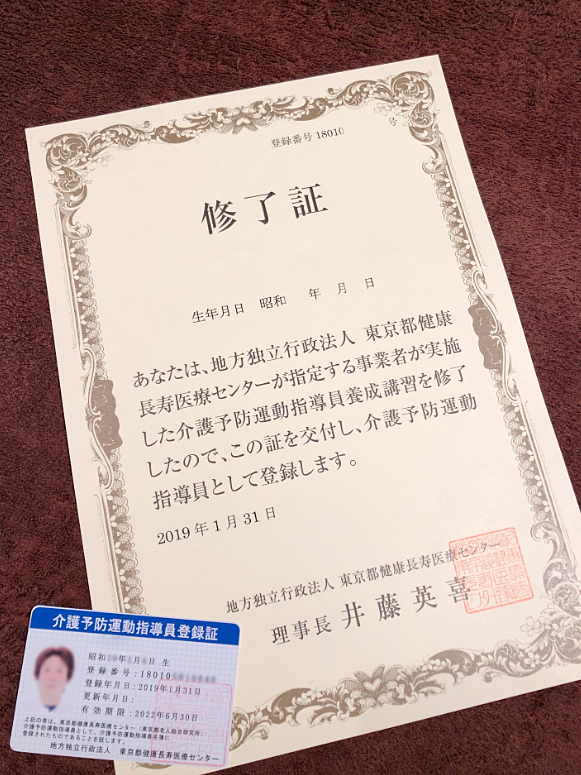 登録番号 18010 号
修了証
生年月日 昭和 年 月 日
あなたは、地方独立行政法人 東京都健康
長寿医療センターが指定する事業者が実施
した介護予防運動指導員養成講習を修了
したので、この証を交付し、介護予防運動
指導員として登録します。
2019年1月31日
地方独立行政法人 東京都健康長寿医療センター
理事長 井藤英喜
介護予防運動指導員登録証
昭和 年 月 日 生
登録番号:18010
登録年月日:2019年1月31日
更新年月日:
有効期限:2022年6月30日
上記の者は、東京都健康長寿医療センター(東京都老人総合研究所)
介護予防運動指導員として、介護予防運動指導員名簿に
登録されたものであることを証します。
地方独立行政法人 東京都健康長寿医療センター